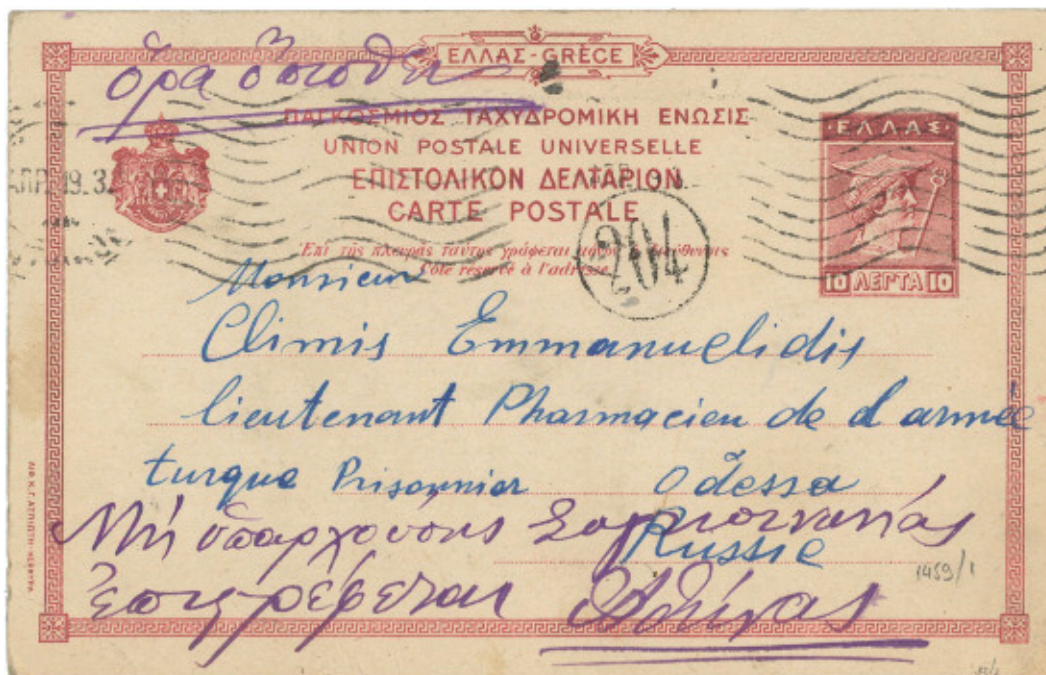 ΕΛΛΑΣ-GRÈCE
ὅρα ὄπισθεν
ΠΑΓΚΟΣΜΙΟΣ ΤΑΧΥΔΡΟΜΙΚΗ ΕΝΩΣΙΣ
UNION POSTALE UNIVERSELLE
ΕΠΙΣΤΟΛΙΚΟΝ ΔΕΛΤΑΡΙΟΝ
CARTE POSTALE
Ἐπὶ τῆς πλευρᾶς ταύτης γράφεται μόνον ἡ διεύθυνσις
Côté réservé à l'adresse
ΕΛΛΑΣ
10 ΛΕΠΤΑ 10
204
Monsieur
Climis Emmanuelidis
lieutenant Pharmacien de l'armée
turque Prisonnier Odessa
Russie
Μὴ ὑπαρχούσης Συγκοινωνίας
ἐπιστρέφεται Ἀθήνας
1459/1